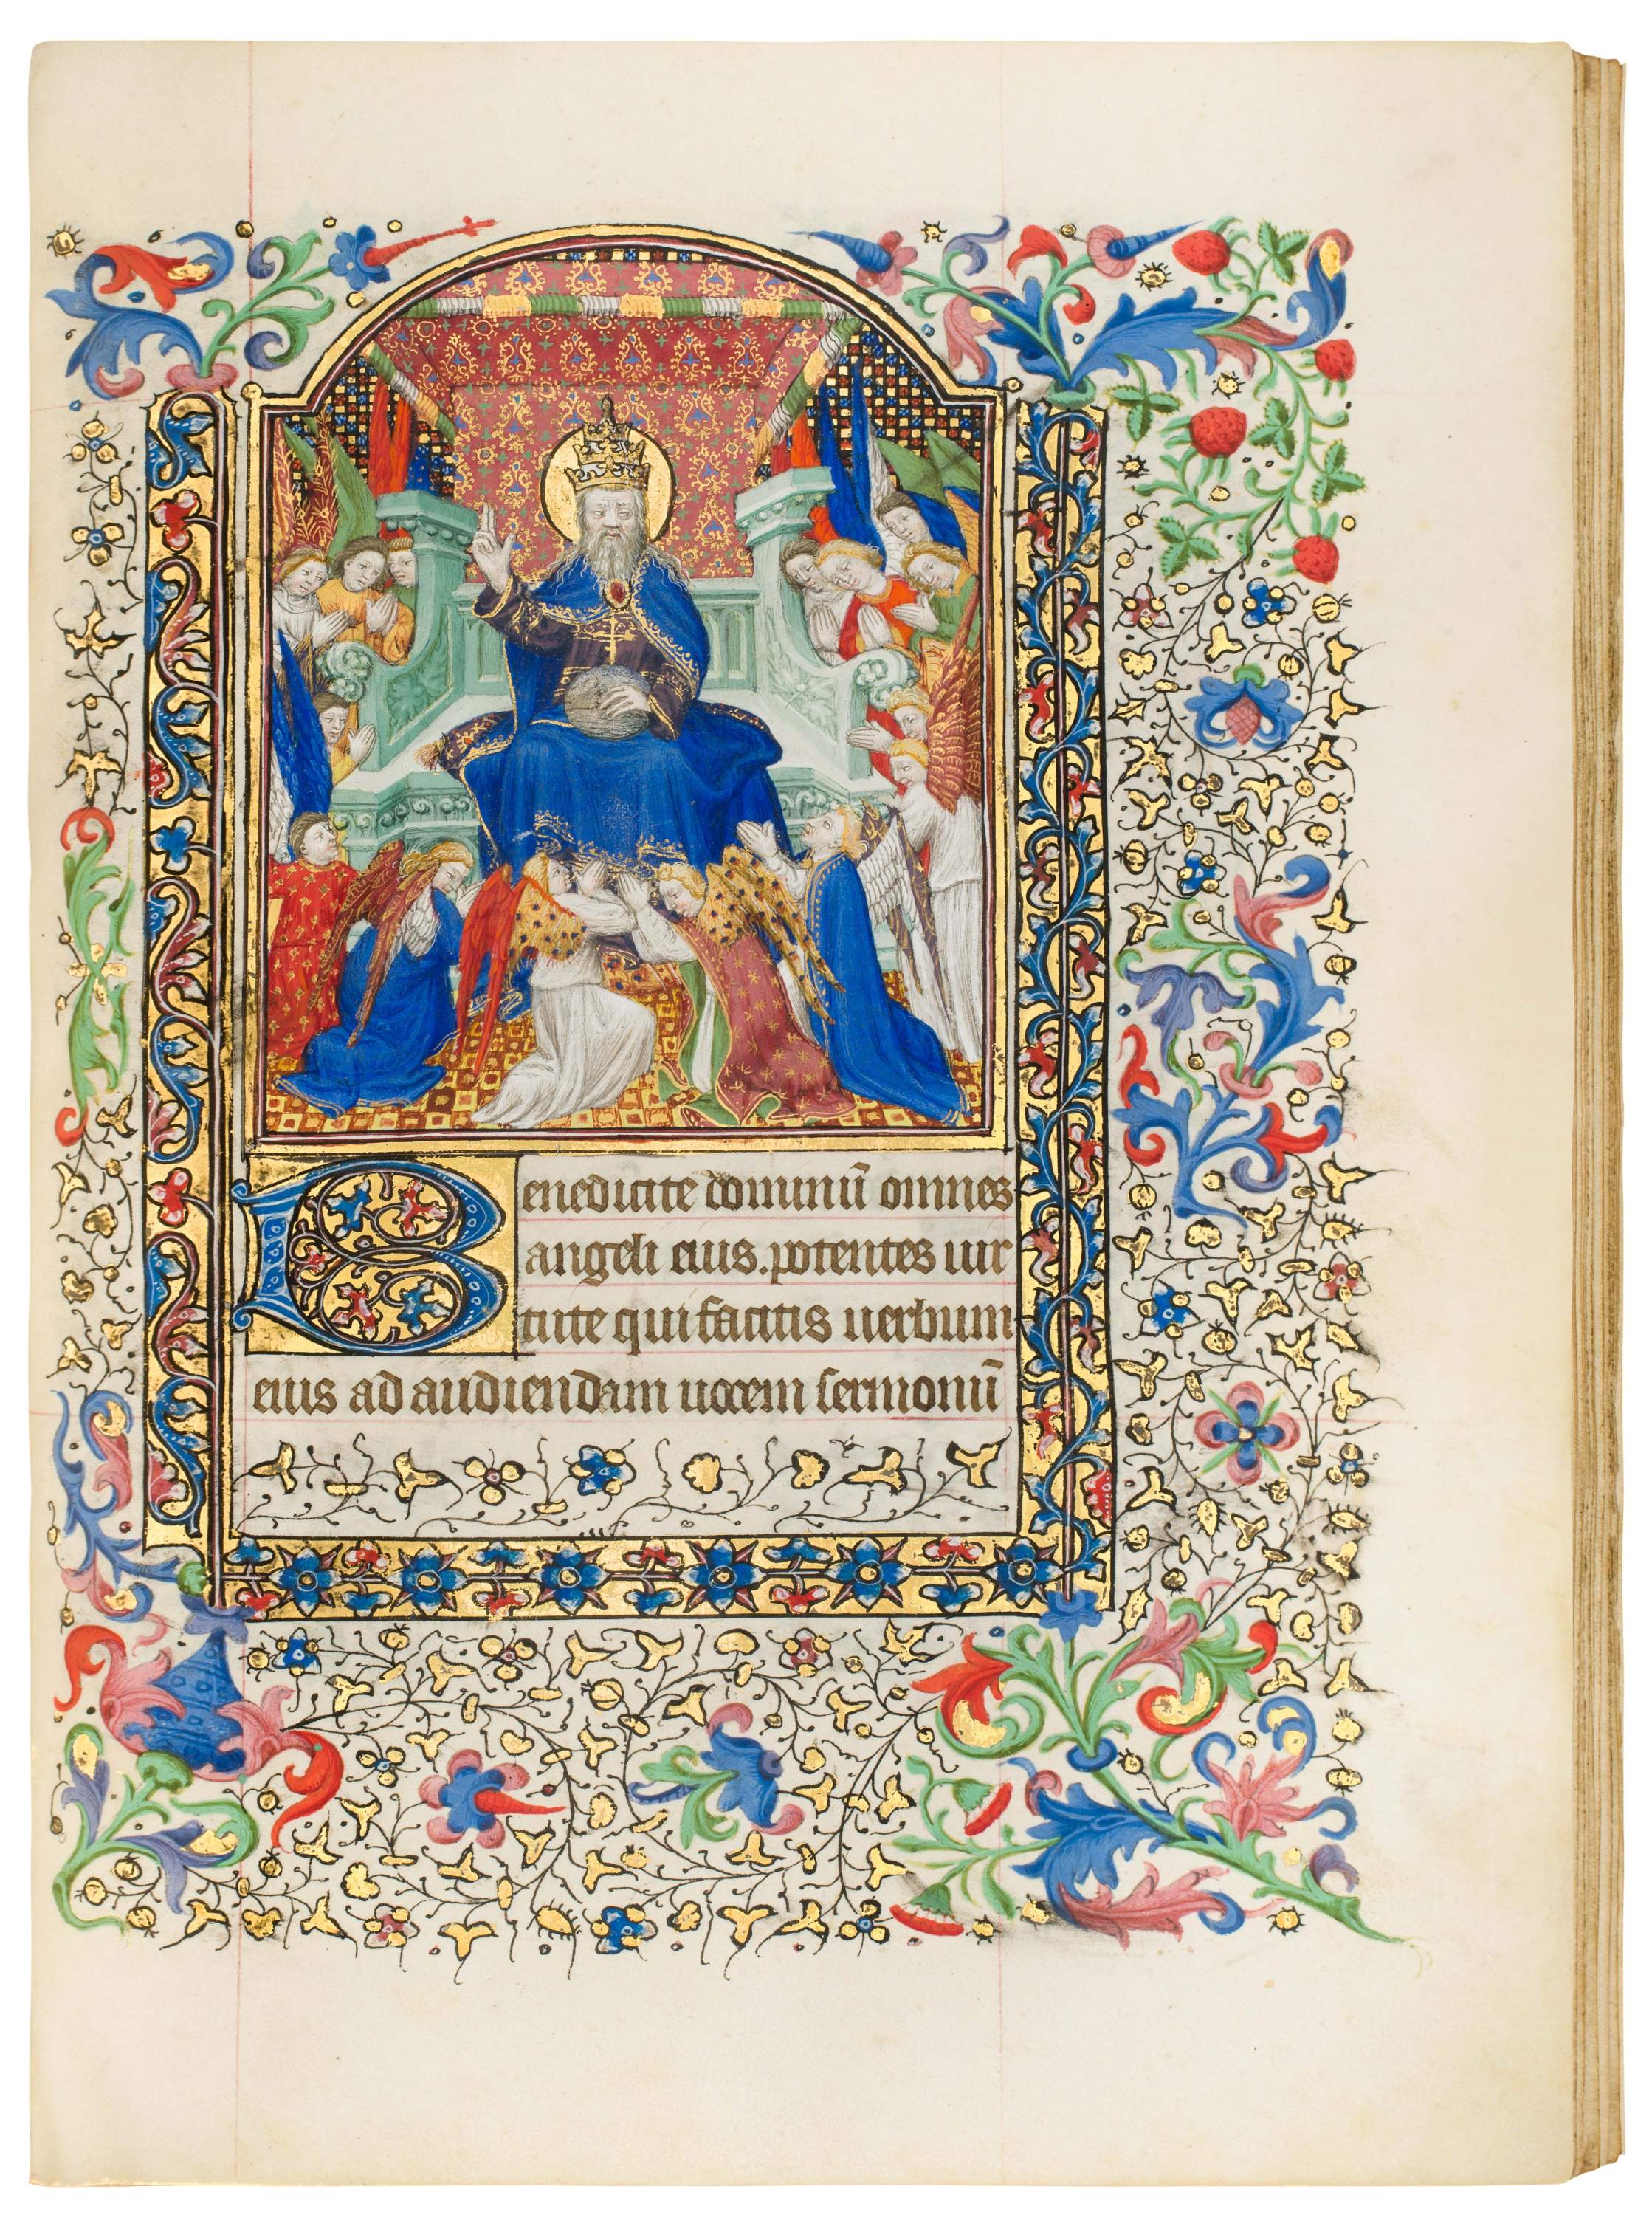 Benedicite dominū omnes
angeli eius. potentes uir
tute qui facitis uerbum
eius ad audiendam uocem sermonū